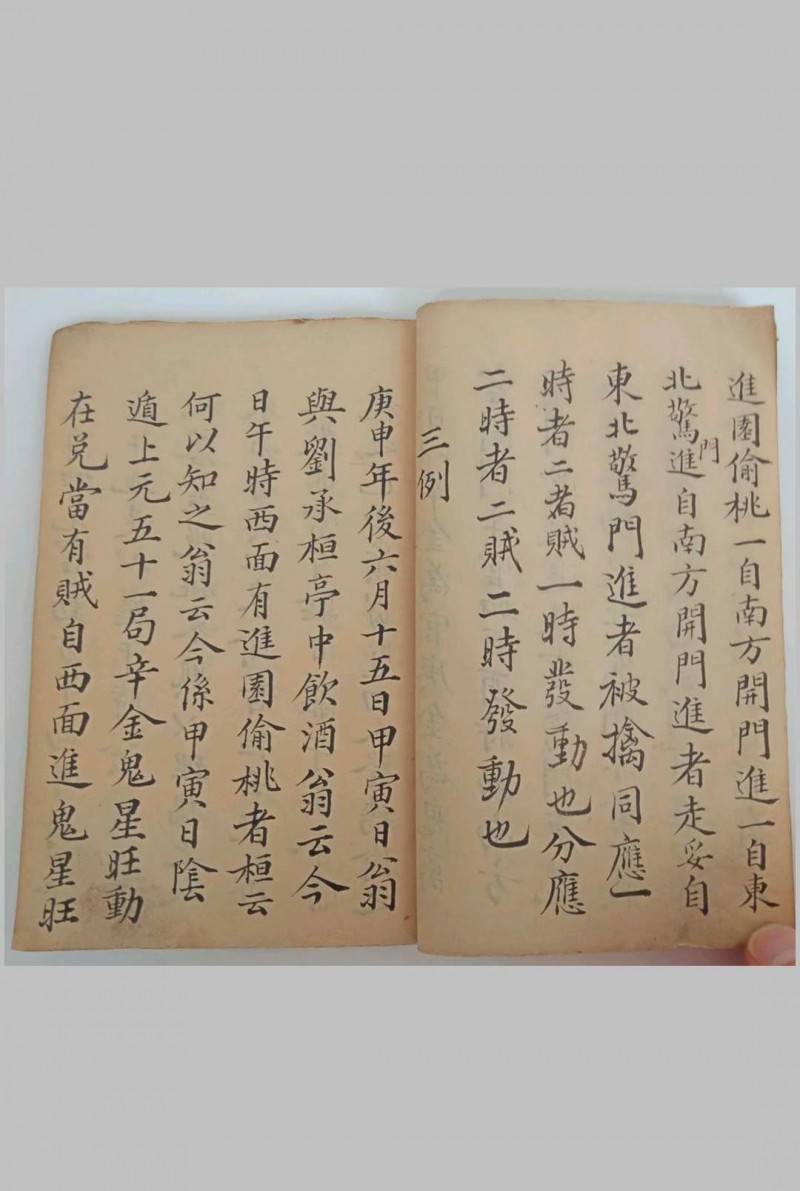 進園偷桃一自南方開門進一自東
北驚門進自南方開門進者走妥自
東北驚門進者被擒同應一
時者二者賊一時發動也分應
二時者二賊二時發動也
三例
庚申年後六月十五日甲寅日翁
與劉承桓亭中飲酒翁云今
日午時西面有進園偷桃者桓云
何以知之翁云今係甲寅日陰
遁上元五十一局辛金鬼星旺動
在兌當有賊自西面進鬼星旺